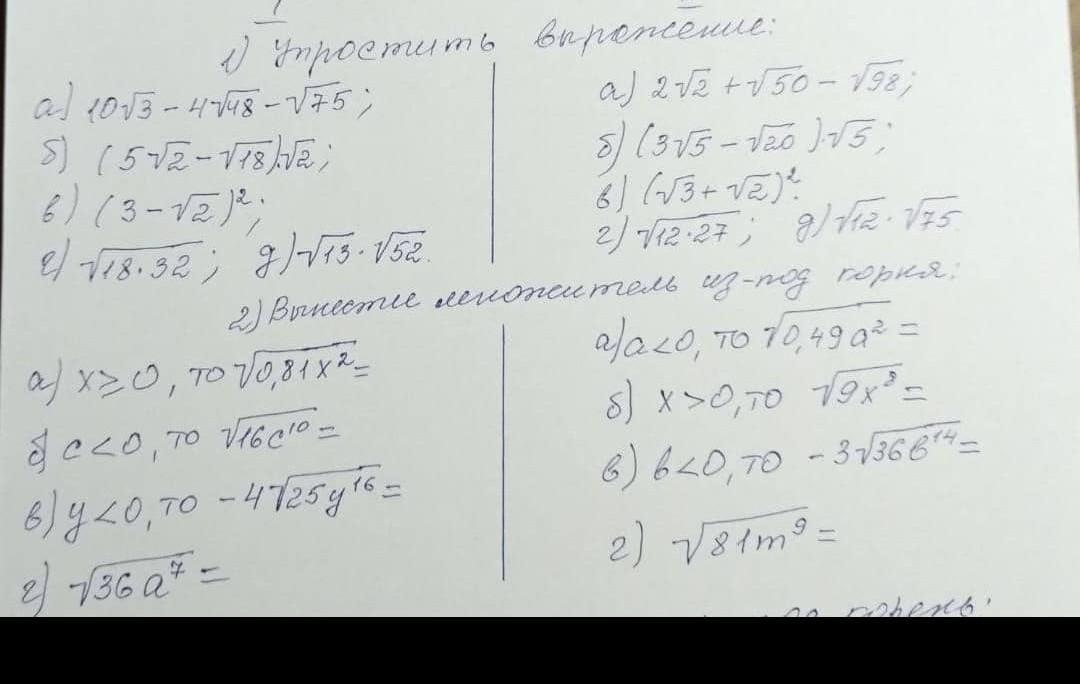 1) Упростить выражение:
а) 10√3 - 4√48 - √75;
б) (5√2 - √18)·√2;
в) (3 - √2)²;
г) √18·32; д) √13·√52.
а) 2√2 + √50 - √98;
б) (3√5 - √20)·√5;
в) (√3 + √2)².
г) √12·27; д) √12·√75
2) Вынести множитель из-под корня:
а) x ≥ 0, то √0,81x² =
б) c < 0, то √16c¹⁰ =
в) y < 0, то -4√25y¹⁶ =
г) √36a⁷ =
а) a < 0, то √0,49a² =
б) x > 0, то √9x⁸ =
в) b < 0, то -3√36b¹⁴ =
г) √81m⁹ =
корень: